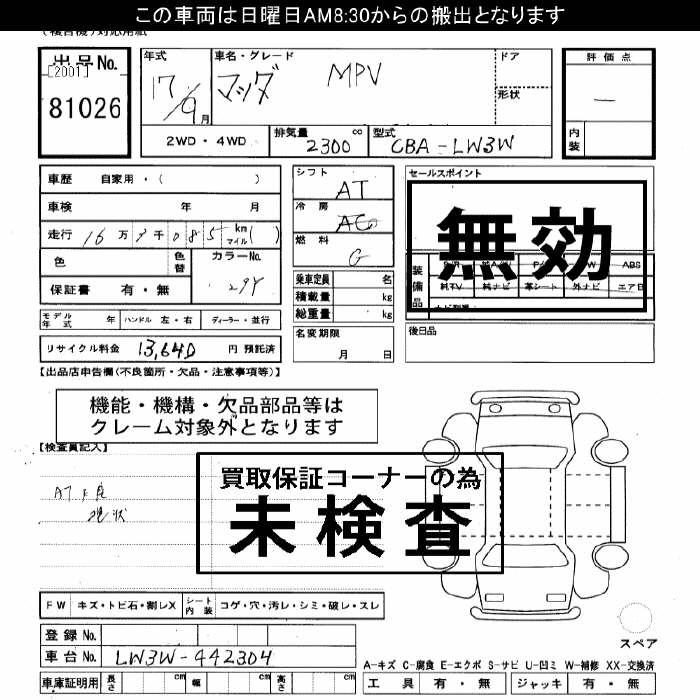 この車両は日曜日AM8:30からの搬出となります
出品No.
[2001]
81026
年式
17/9月
車名・グレード
マツダ MPV
ドア
形状
評価点
—
内装
2WD・4WD
排気量 2300 cc
型式 CBA-LW3W
車歴 自家用・( )
車検 年 月
走行 16万 7千 085 km マイル( )
色 色替 カラーNo.
29Y
保証書 有・無
モデル年式 年 ハンドル 左・右 ディーラー・並行
リサイクル料金 13,640 円 預託済
シフト AT
冷房 AC
燃料 G
乗車定員 名
積載量 kg
総重量 kg
名変期限
月 日
セールスポイント
無効
装備品
ABS
純TV 純ナビ 革シート 外ナビ エアB
後日品
【出品店申告欄(不良箇所・欠品・注意事項等)】
機能・機構・欠品部品等は
クレーム対象外となります
【検査員記入】
買取保証コーナーの為
未検査
AT不良
現状
FW キズ・トビ石・割レX シート内装 コゲ・穴・汚レ・シミ・破レ・スレ
登録No.
車台No. LW3W-442304
車庫証明用 長さ cm 幅 cm 高さ cm
スペア
A-キズ C-腐食 E-エクボ S-サビ U-凹ミ W-補修 XX-交換済
工具 有・無 ジャッキ 有・無